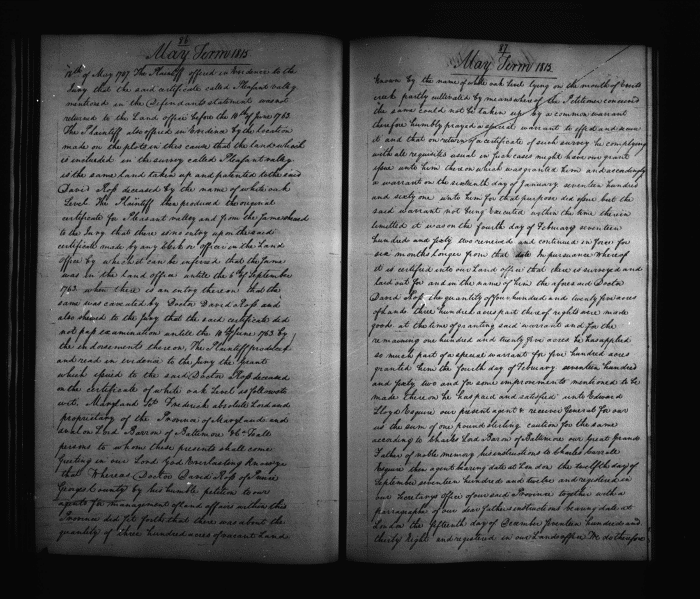 86
May Term 1815
18th of May 1787 The Plaintiff offered in Evidence to the
Jury that the said certificate called Pleasant valley
mentioned in the Defendants statement was not
returned to the Land office before the 10th of June 1763
The Plaintiff also offered in Evidence by the location
made on the plots in this cause that the land which
is included in the survey called Pleasant valley
is the same land taken up and patented to the said
David Ross deceased by the name of white oak
Level The Plaintiff then produced the original
certificate for Pleasant valley and from the same shewed
to the Jury that there is no entry upon the said
certificate made by any Clerk or officer in the Land
office by which it can be inferred that the same
was in the land office untill the 5th of September
1763 when there is an entry thereon that the
same was caveated by Doctor David Ross and
also shewed to the Jury that the said certificate did
not pass examination untill the 10th June 1763 by
the indorsements thereon, The Plaintiff produced
and read in evidence to the Jury the Grant
which issued to the said Doctor Ross deceased
on the certificate of white oak Level as follows to
wit. Maryland Sct Frederick absolute Lord and
proprietary of the Province of Maryland and
avalon Lord Barron of Baltimore &ca To all
persons to whom these presents shall come
Greeting in our Lord God Everlasting Know ye
that Whereas Doctor David Ross of Prince
Georges County by his humble petition to our
agents for management of land affairs within this
Province did set forth that there was about the
quantity of three hundred acres of vacant Land
87
May Term 1815
known by the name of white oak Level lying on the mouth of
creek partly cultivated by means whereof the Petitioner conceived
the same could not be taken up by a common warrant
therefore humbly prayed a special warrant to affect and secure
it and that on return of a certificate of such survey he complying
with all requisites usual in such cases might have our grant
issue unto him thereon which was granted him and accordingly
a warrant on the sixteenth day of January seventeen hundred
and sixty one unto him for that purpose did issue but the
said warrant not being executed within the time therein
limitted it was on the fourth day of Febuary seventeen
hundred and sixty two renewed and continued in force for
six months longer from that date In pursuance Whereof
it is certified into our Land office that there is surveyed and
laid out for and in the name of him the aforesaid Doctor
David Ross the quantity of four hundred and twenty five acres
of land three hundred acres part thereof rights were made
good at the time of granting said warrant and for the
remaining one hundred and twenty five acres he has applied
so much part of a special warrant for five hundred acres
granted him the fourth day of Febuary seventeen hundred
and sixty two and for some improvements mentioned to be
made thereon he has paid and satisfied unto Edward
Lloyd Esquire our present agent & receiver General for our
use the sum of one pound sterling caution for the same
according to Charles Lord Baron of Baltimore our Great Grand
Father of noble memory his instructions to Charles Carroll
Esquire then agent bearing date at London the twelfth day of
September seventeen hundred and twelve and registered in
our Secretarys office of our said Province together with a
paragraph of our dear Fathers instructions bearing date at
London the fifteenth day of December seventeen hundred and
thirty Eight and registered in our Land office We do therefore